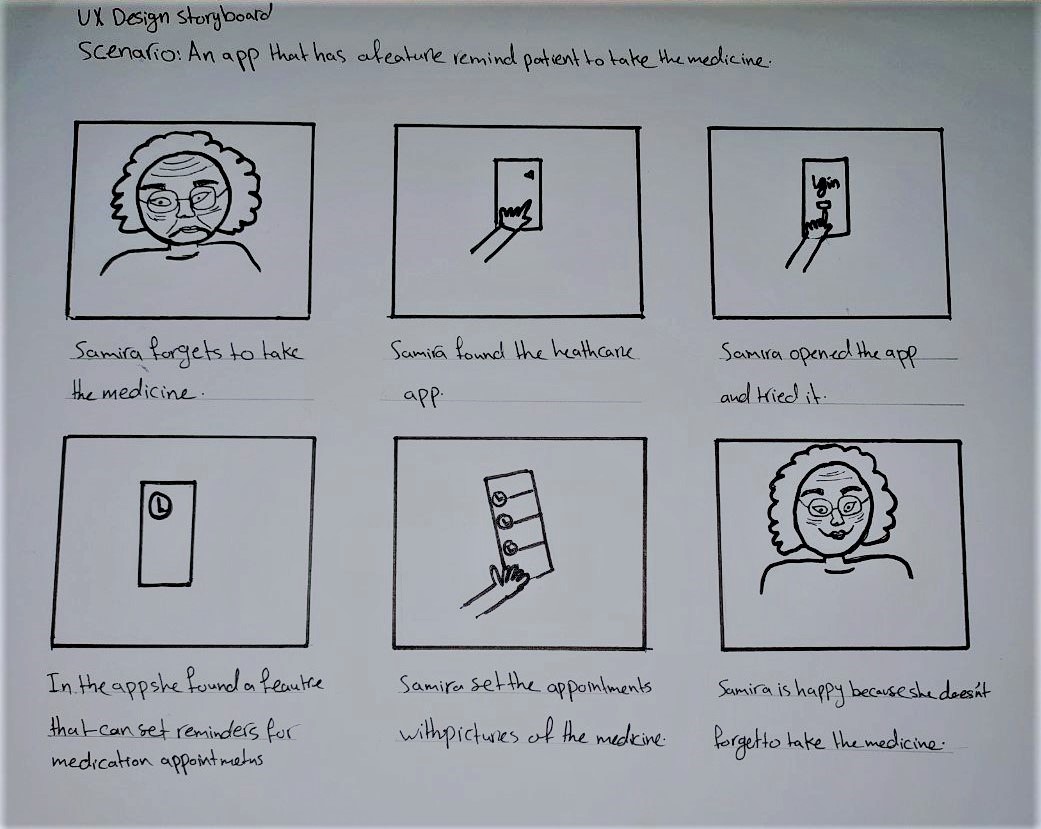 UX Design Storyboard
Scenario: An app that has a feature remind patient to take the medicine.
Samira forgets to take
the medicine.
Samira found the heathcare
app.
login
Samira opened the app
and tried it.
In the app she found a feautre
that can set reminders for
medication appointmetns
Samira set the appointments
with pictures of the medicine.
Samira is happy because she doesn't
forget to take the medicine.